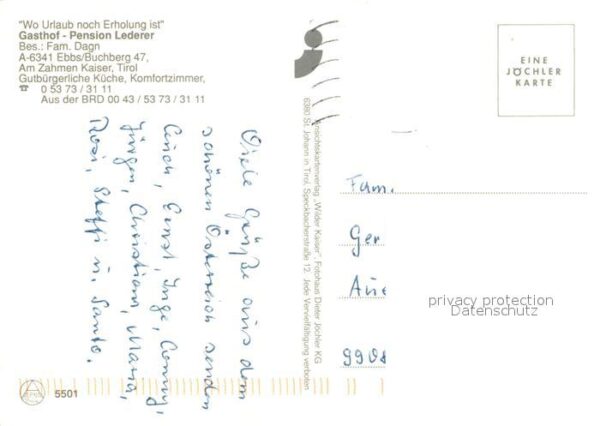 "Wo Urlaub noch Erholung ist"
Gasthof - Pension Lederer
Bes.: Fam. Dagn
A-6341 Ebbs/Buchberg 47,
Am Zahmen Kaiser, Tirol
Gutbürgerliche Küche, Komfortzimmer,
☎ 0 53 73 / 31 11
Aus der BRD 00 43 / 53 73 / 31 11
EINE
JÖCHLER
KARTE
Viele Grüße aus dem
schönen Österreich senden
Euch, Ernst, Inge, Conny,
Jürgen, Christiane, Maria,
Rosi, Steffi u.
Ansichtskartenverlag „Wilder Kaiser", Fotohaus Dieter Jöchler KG
6380 St. Johann in Tirol, Speckbacherstraße 12. Jede Vervielfältigung verboten
Fam.
Ger
Aue
privacy protection
Datenschutz
5501